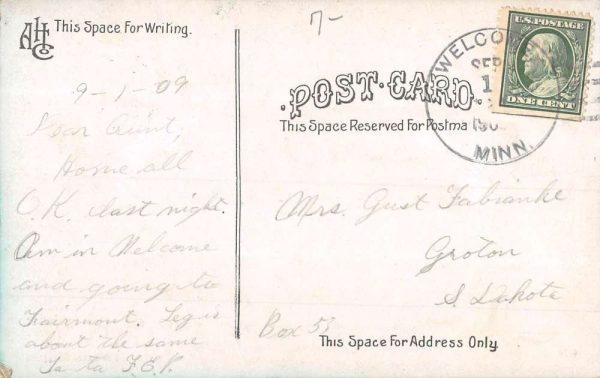 AHCo
This Space For Writing.
7-
9-1-09
Dear Aunt,
Home all
O.K. last night.
Am in Welcome
and going to
Fairmont. Leg is
about the same
Ta ta F.E.P.
POST-CARD.
This Space Reserved For Postma
WELCO
SEP
1
190
MINN.
U.S. POSTAGE
ONE CENT
Mrs. Gust Fabianke
Groton
S. Dakota
Box 53
This Space For Address Only.